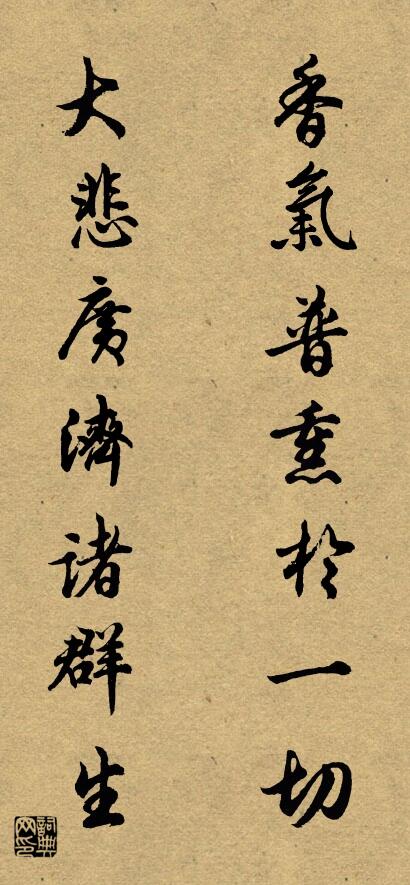 香氣普熏於一切
大悲廣濟諸群生
詞典
网印